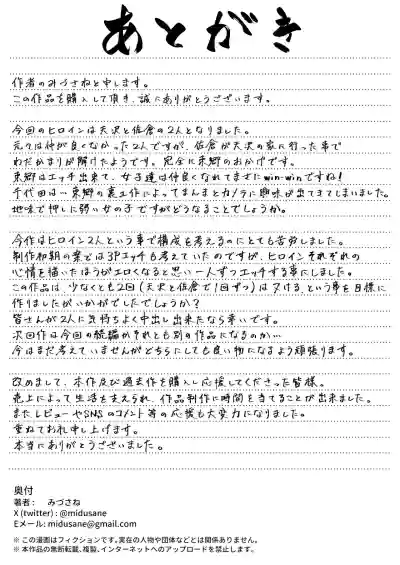 あとがき
作者のみづさねと申します。
この作品を購入して頂き、誠にありがとうございます。
今回のヒロインは天沢と佐倉の2人となりました。
元々は仲が良くなかった2人ですが、佐倉が天沢の家に行った事で
わだかまりが解けたようです。完全に東郷のおかげです。
東郷はエッチ出来て、女子達は仲良くなれてまさにwin-winですね!
千代田は…東郷の裏工作によってまんまとカノラに興味が出てきてしまいました。
地味で押しに弱い女の子ですがどうなることでしょうか。
今作はヒロイン2人という事で構成を考えるのにとても苦労しました。
制作初期の案では3Pエッチも考えていたのですが、ヒロインそれぞれの
心情を描いたほうがエロくなると思い一人ずつエッチする事にしました。
この作品は、少なくとも2回(天沢と佐倉で1回ずつ)はヌける、という事を目標に
作りましたがいかがでしたでしょうか?
皆さんが2人に気持ちよく中出し出来たなら幸いです。
次回作は今回の続編かそれとも別の作品になるのか…
今はまだ考えていませんがどちらにしても良い物になるよう頑張ります。
改めまして、本作及び過去作を購入し応援してくださった皆様。
売上によって生活を支えられ、作品制作に時間を当てることが出来ました。
またレビューやSNSのコメント等の応援も大変力になりました。
重ねてお礼申し上げます。
本当にありがとうございました。
奥付
著者: みづさね
X (twitter) : @midusane
Eメール: midusane@gmail.com
※ この漫画はフィクションです。実在の人物や団体などとは関係ありません。
※ 本作品の無断転載、複製、インターネットへのアップロードを禁止します。